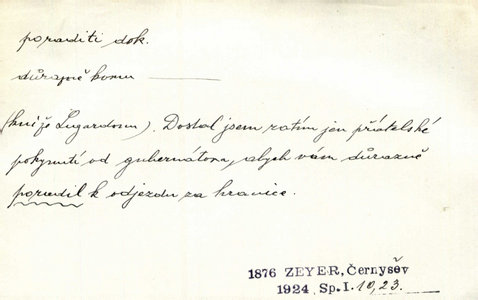 poraditi dok.
důrazně komu
(kníže Lugardom). Dostal jsem zatím jen přátelské
pokynutí od gubernátora, abych vám důrazně
poradil k odjezdu za hranice.
1876 ZEYER, Černyšěv
1924 Sp. I. 10,23.